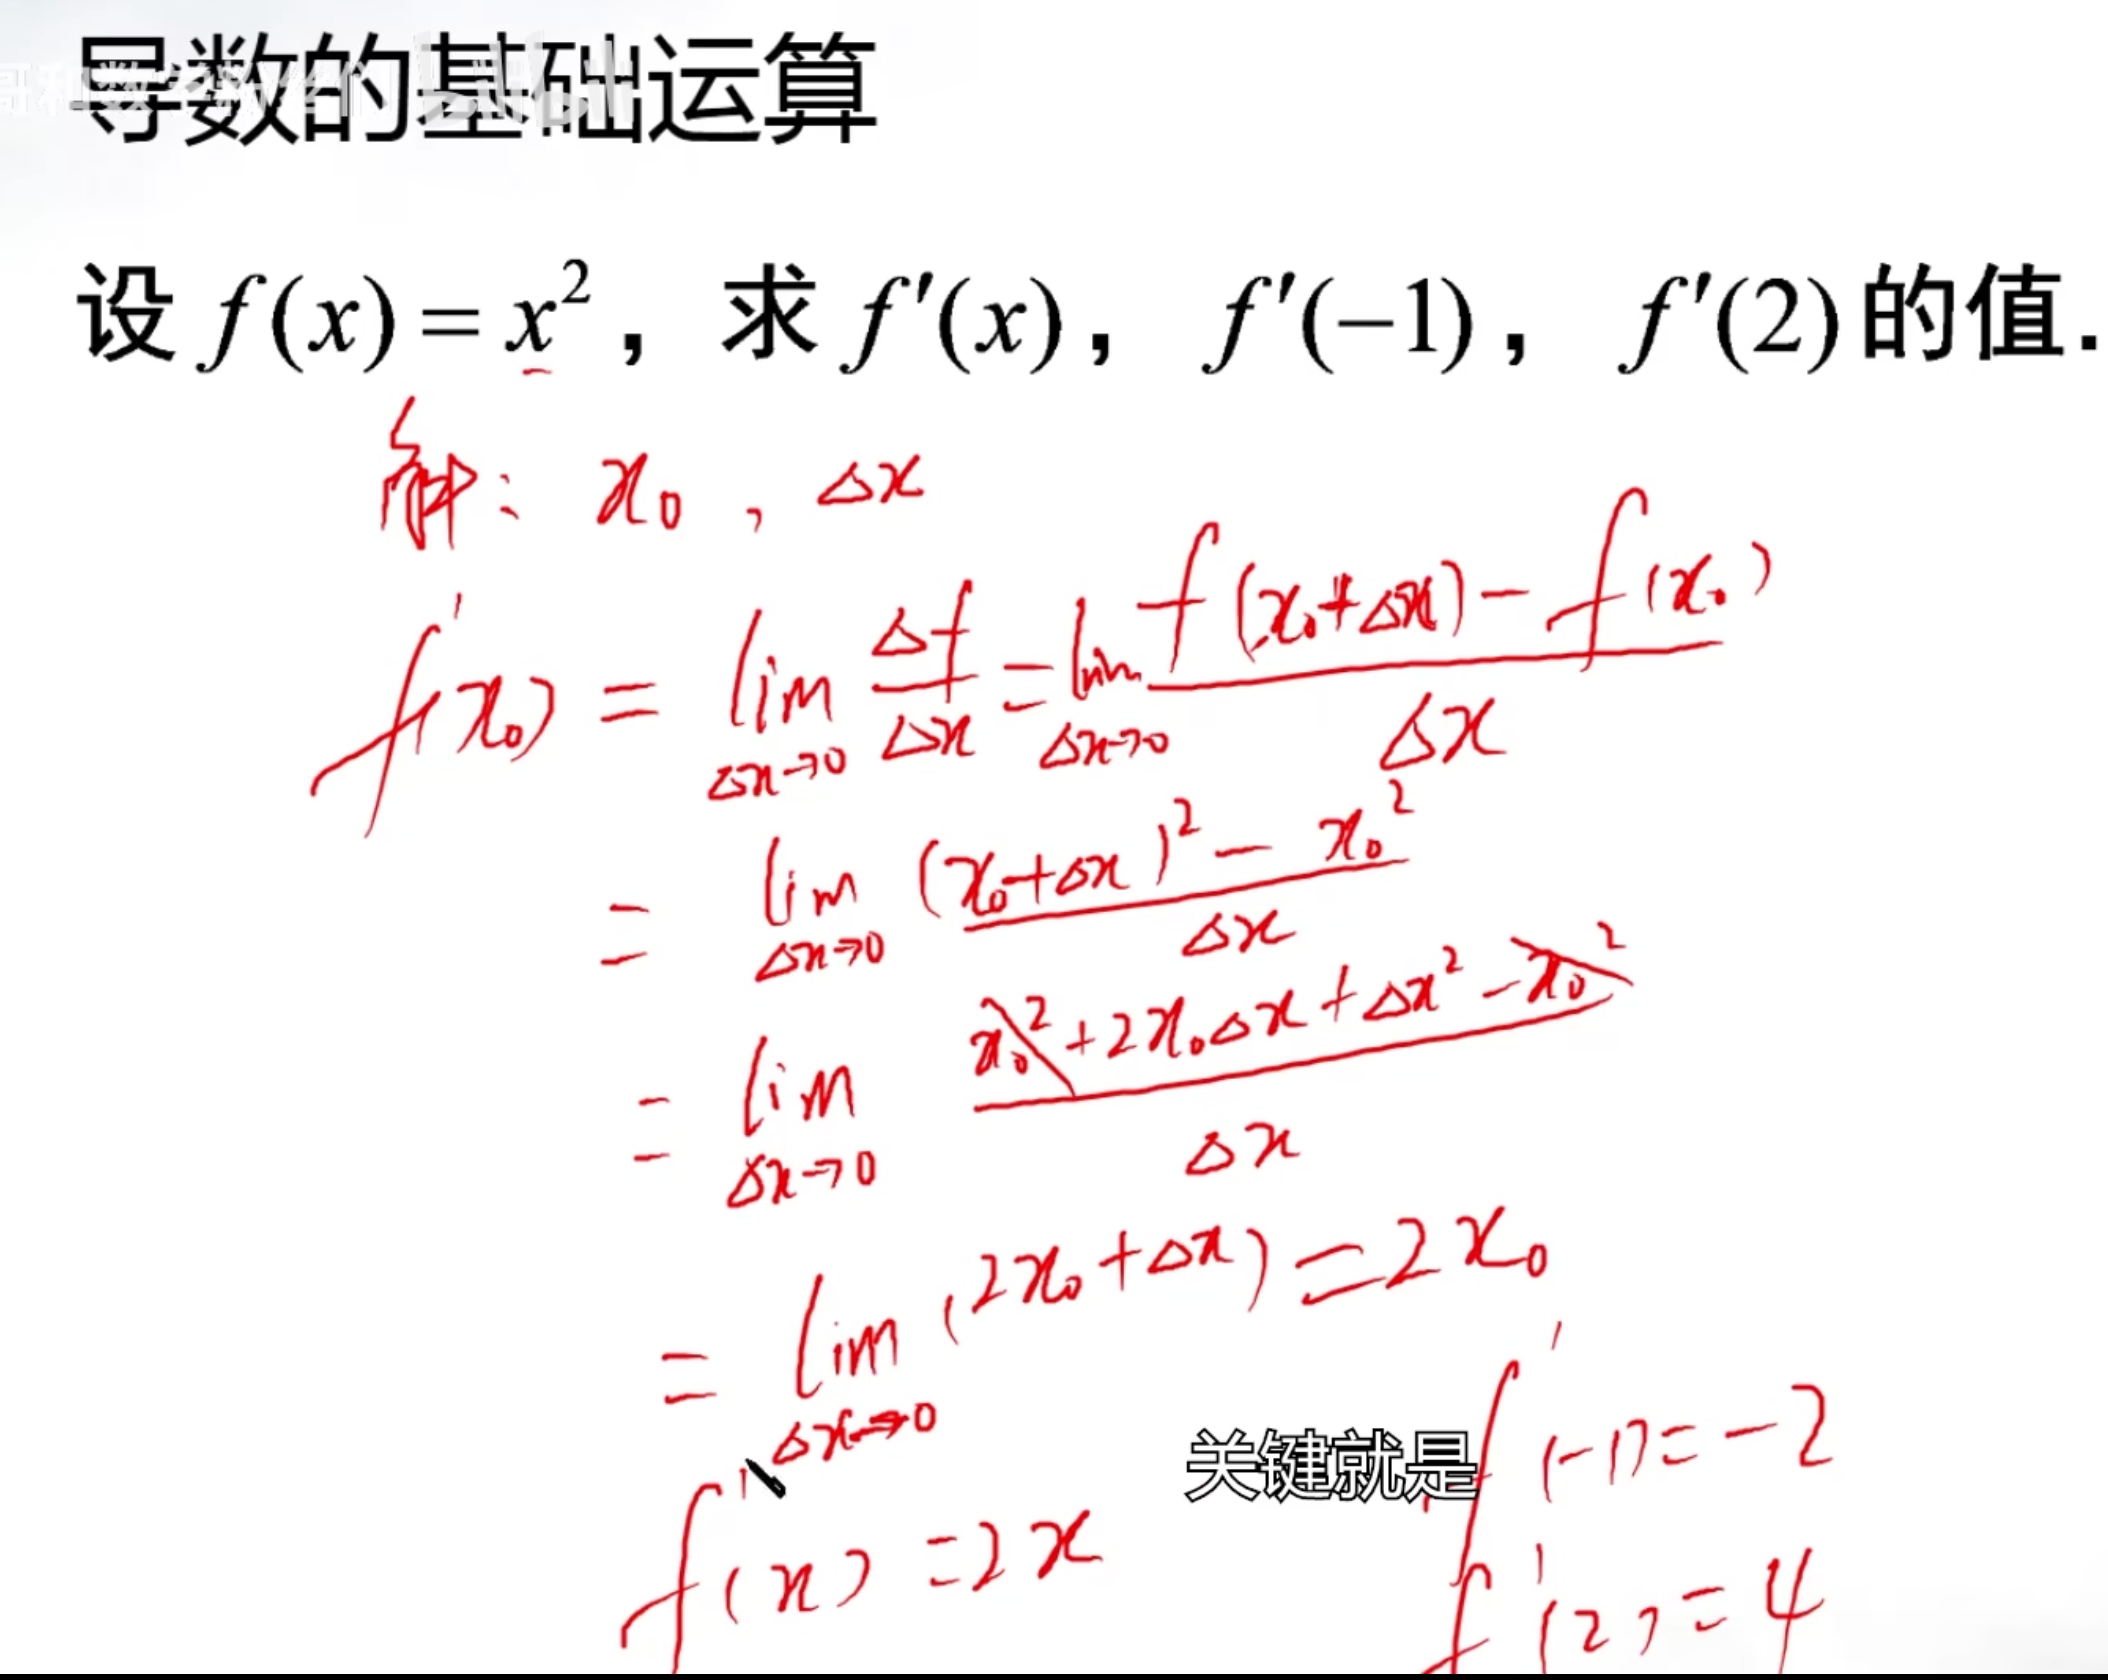 导数的基础运算
哥和数学粉丝们
设 f(x) = x²，求 f′(x)， f′(−1)， f′(2) 的值.
解: x₀ , Δx
f′(x₀) = lim Δx→0 Δf/Δx = lim Δx→0 (f(x₀+Δx) − f(x₀))/Δx
= lim Δx→0 ((x₀+Δx)² − x₀²)/Δx
= lim Δx→0 (x₀² + 2x₀Δx + Δx² − x₀²)/Δx
= lim Δx→0 (2x₀ + Δx) = 2x₀
f′(−1) = −2
关键就是
f′(x) = 2x
f′(2) = 4